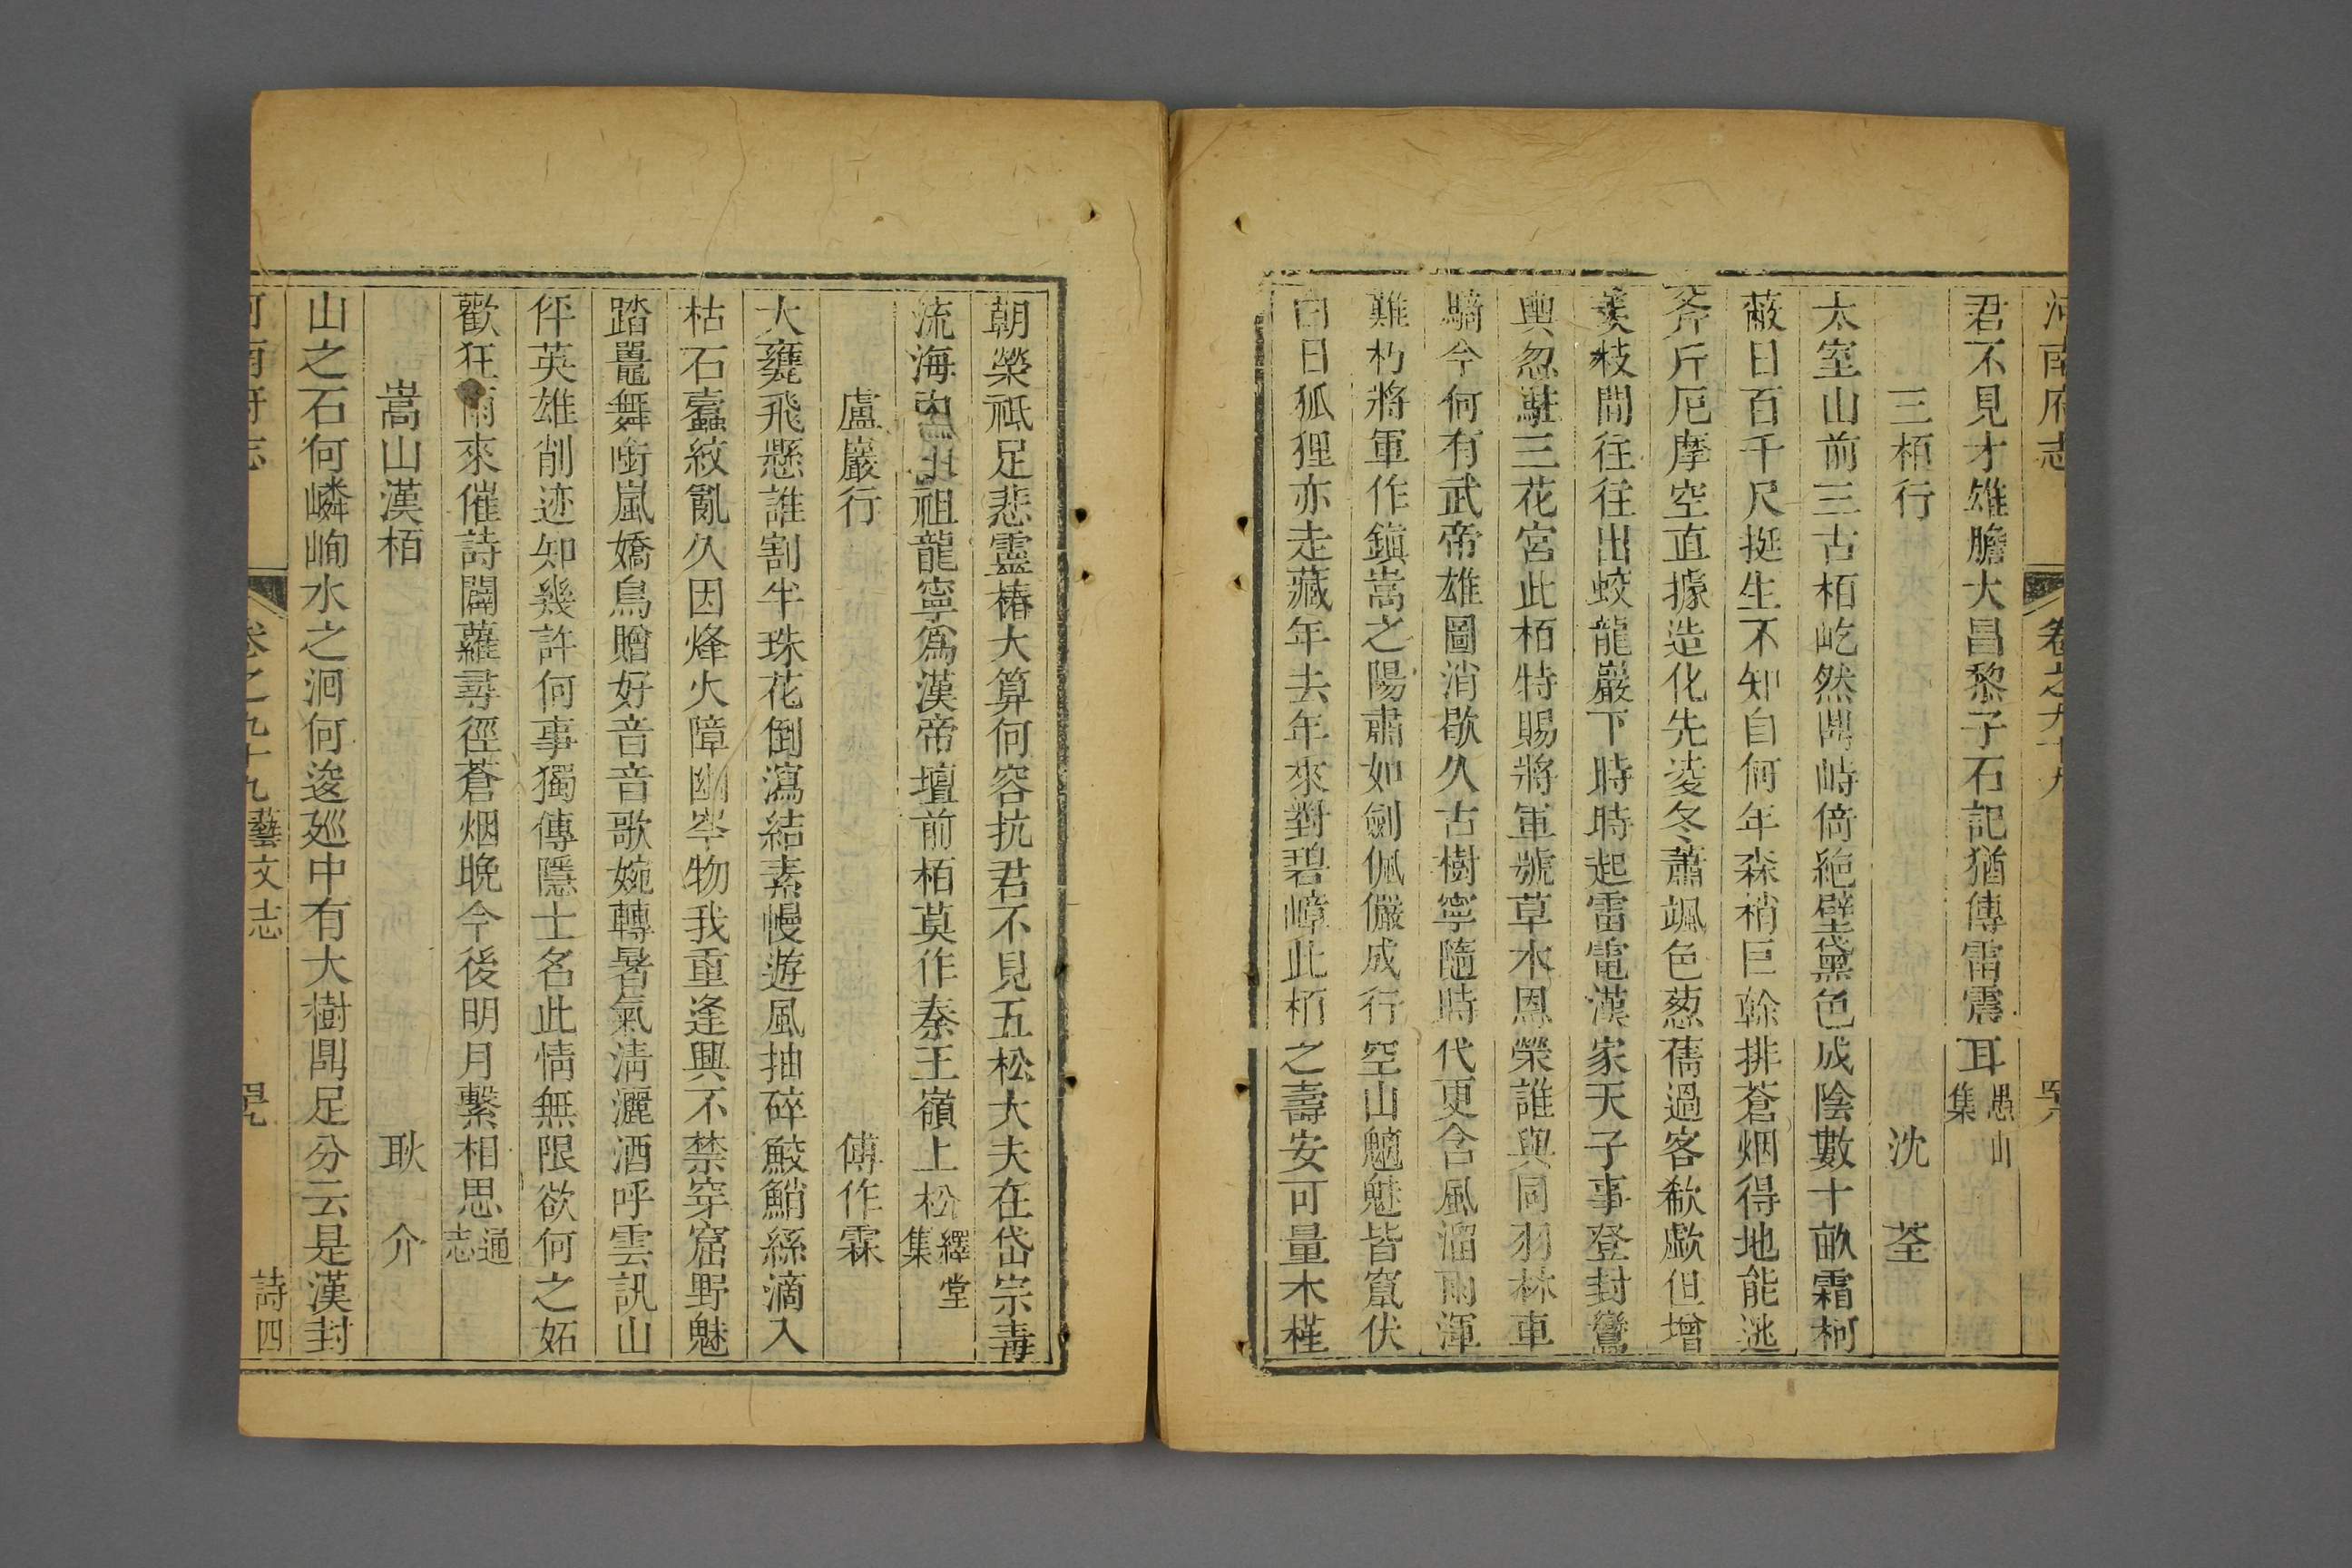 河南府志 卷之九十九
君不見才雄膽大昌黎子石記猶傳雷震耳愚山集
三栢行 沈荃
太室山前三古栢屹然鼎峙倚絶壁黛色成陰數十畝霜柯
蔽日百千尺挺生不知自何年森梢巨榦排蒼烟得地能逃
斧斤厄摩空直據造化先凌冬蕭颯色葱蒨過客欷歔但增
羨枝間往往出蛟龍巖下時時起雷電漢家天子事登封鸞
輿忽駐三花宮此栢特賜將軍號草木恩榮誰與同羽林車
騎今何有武帝雄圖消歇久古樹寧隨時代更含風溜雨渾
難朽將軍作鎭嵩之陽肅如劍佩儼成行空山魑魅皆竄伏
白日狐狸亦走藏年去年來對碧嶂此栢之壽安可量木槿
朝榮祗足悲靈椿大算何容抗君不見五松大夫在岱宗毒
流海祖龍寧爲漢帝壇前栢莫作秦王嶺上松繹堂集
盧巖行 傅作霖
大甕飛懸誰割半珠花倒瀉結素幔遊風抽碎鮫鮹絲滴入
枯石蠹紋亂久因烽火障幽岑物我重逢興不禁穿窟野魅
踏鼉舞衝嵐嬌鳥贈好音音歌婉轉暑氣淸灑酒呼雲訊山
伻英雄削迹知幾許何事獨傳隱士名此情無限欲何之妬
歡狂雨來催詩闢蘿尋徑蒼烟晚今後明月繫相思通志
嵩山漢栢 耿介
山之石何嶙峋水之洄何逡廵中有大樹鼎足分云是漢封
河南府志 卷之九十九 藝文志 詩四